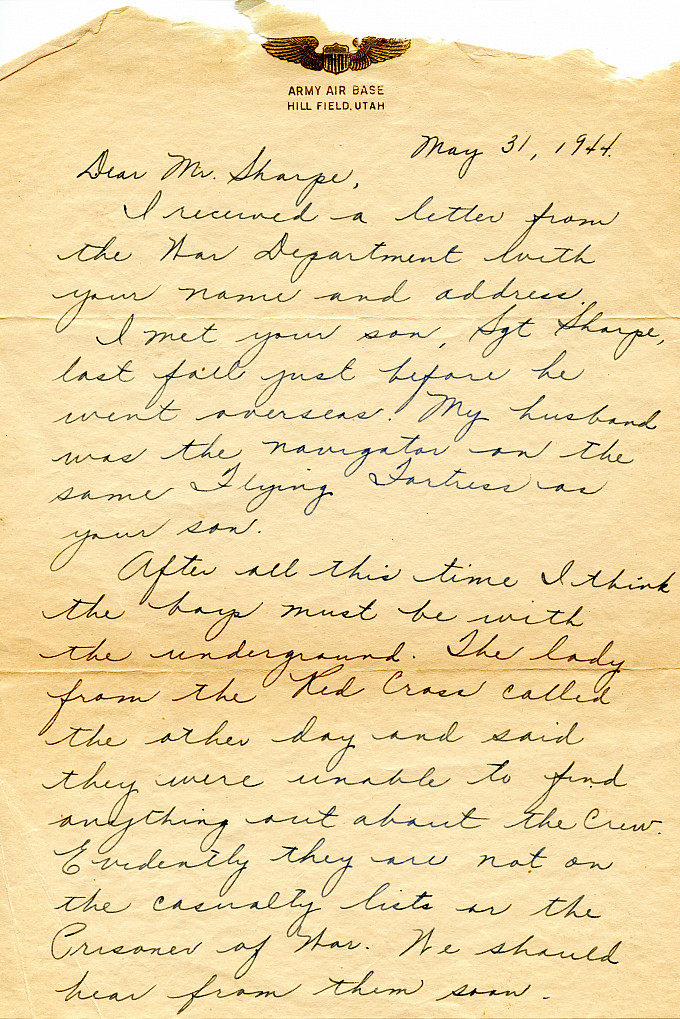 ARMY AIR BASE
HILL FIELD, UTAH
May 31, 1944.
Dear Mr. Sharpe,
I received a letter from
the War Department with
your name and address.
I met your son, Sgt Sharpe,
last fall just before he
went overseas. My husband
was the navigator on the
same Flying Fortress as
your son.
After all this time I think
the boys must be with
the underground. The lady
from the Red Cross called
the other day and said
they were unable to find
anything out about the Crew.
Evidently they are not on
the casualty lists or the
Prisoner of War. We should
hear from them soon.